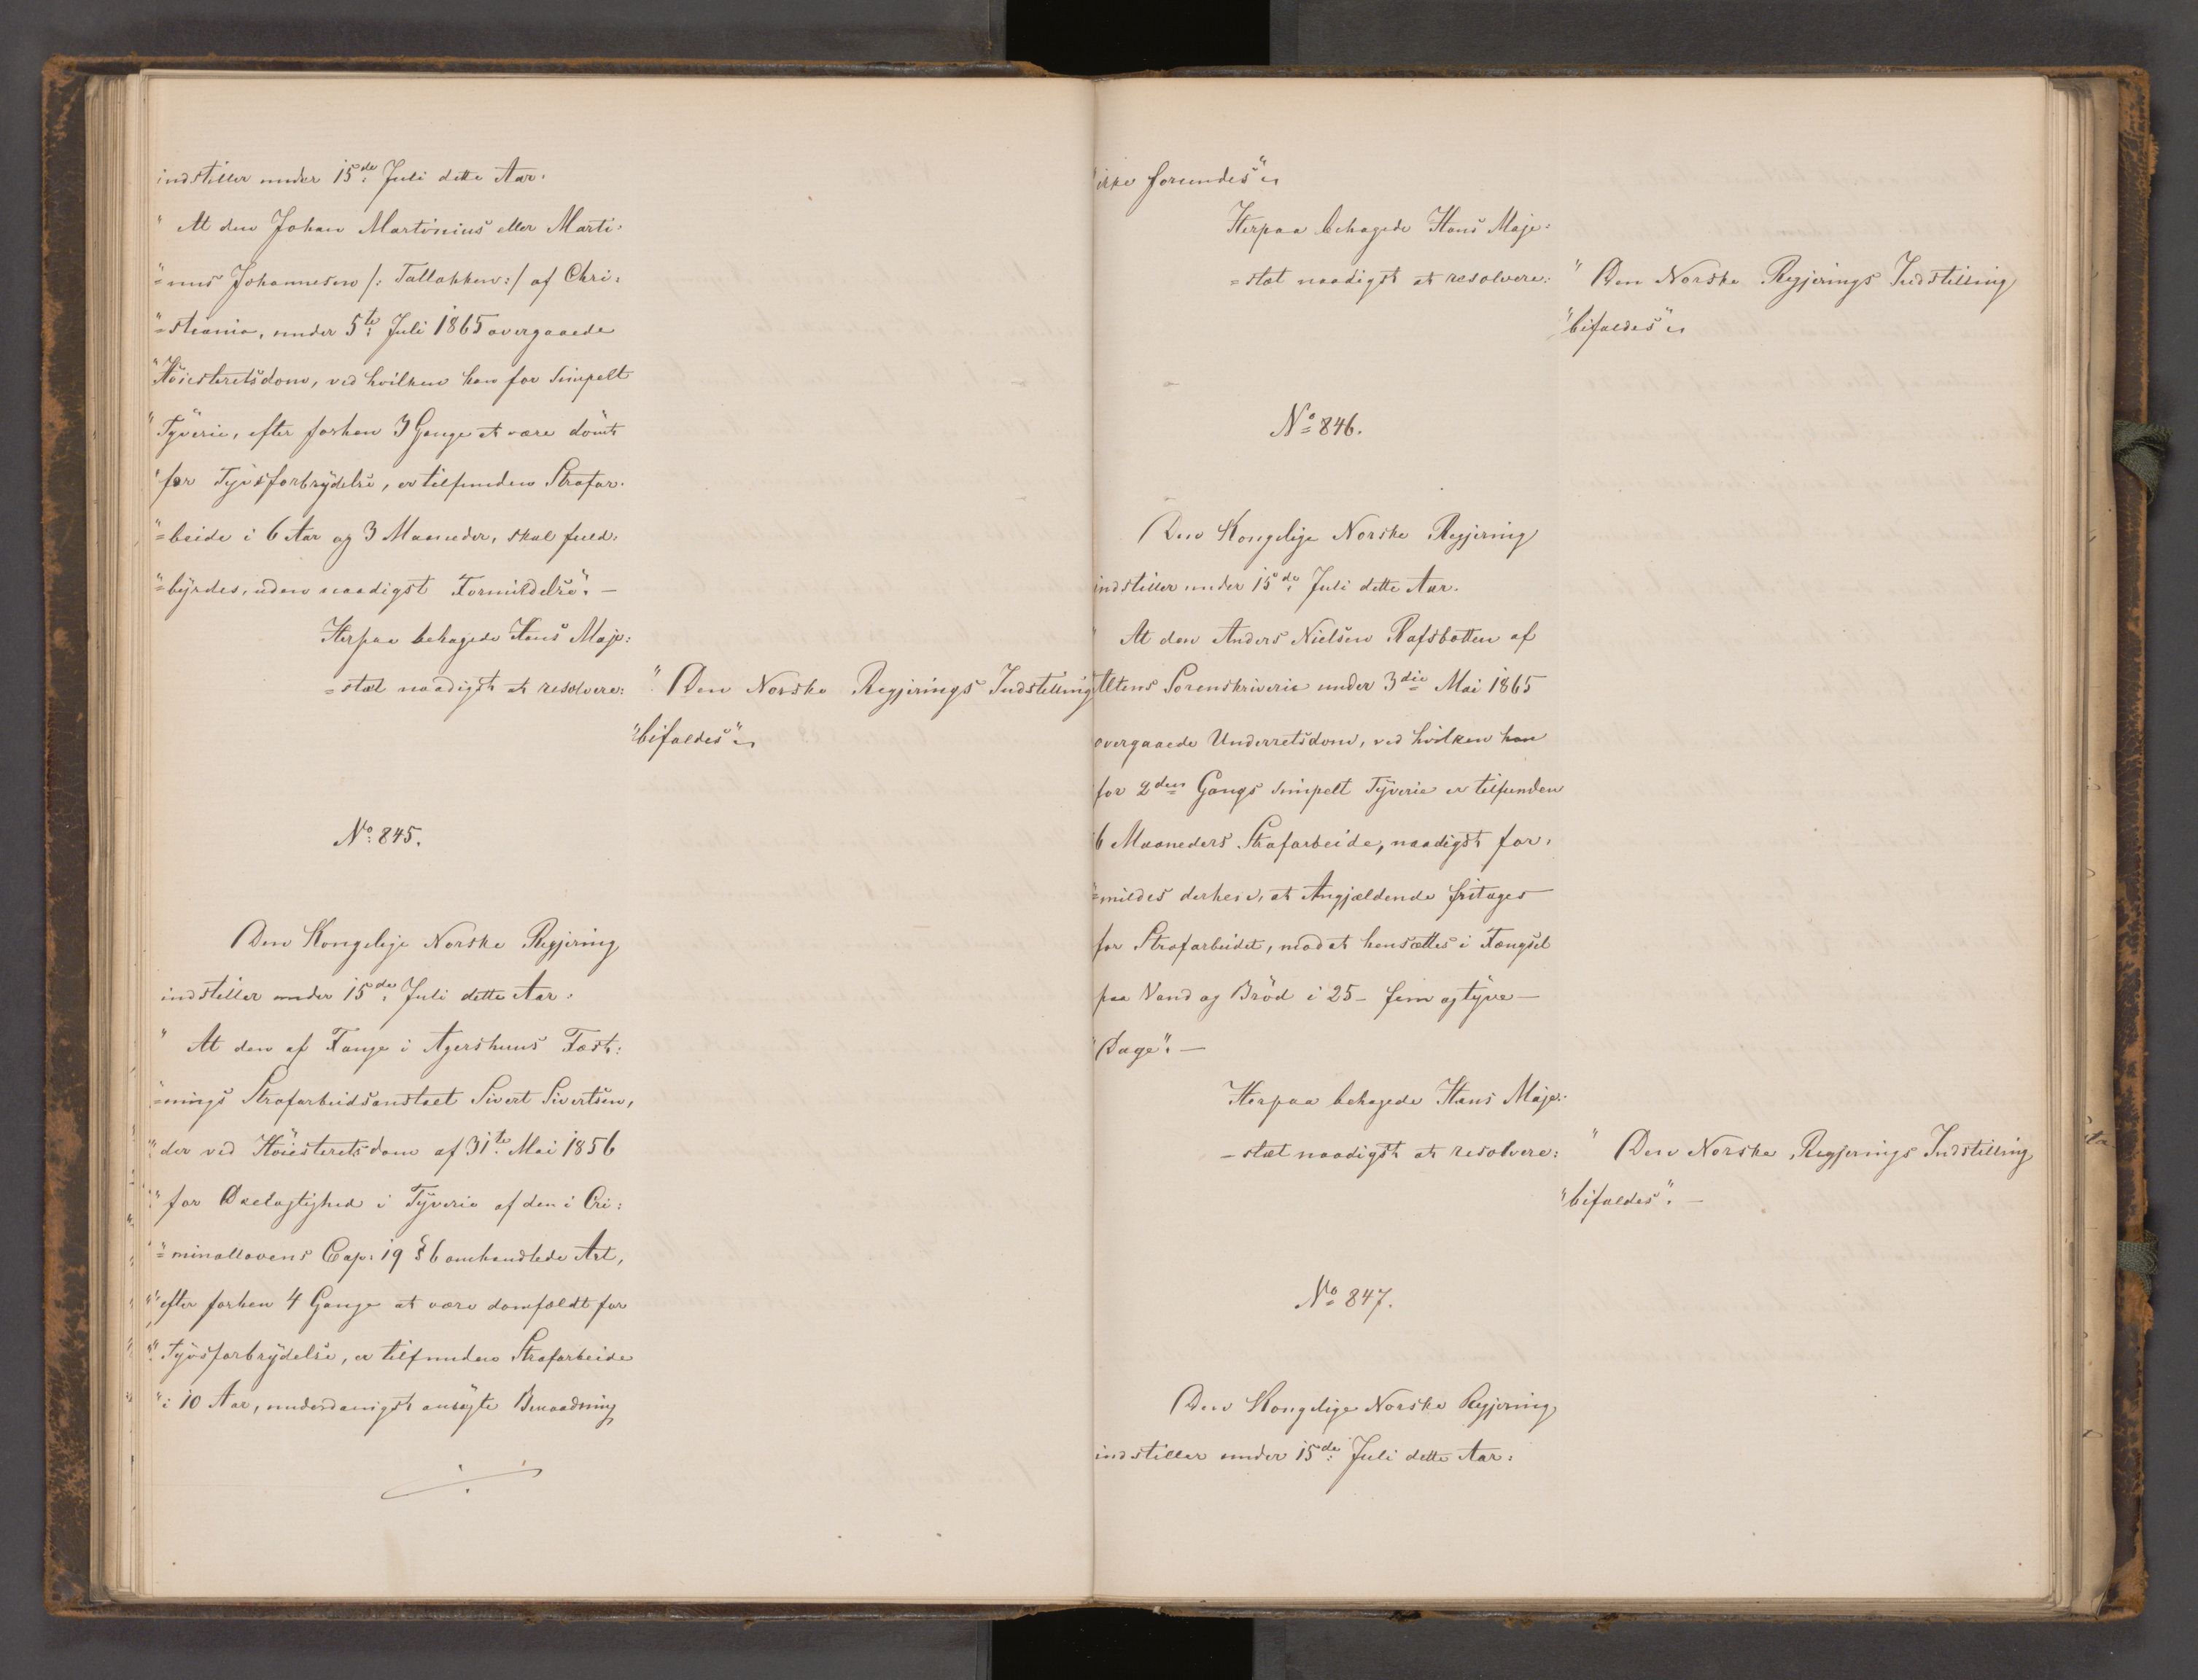 indstiller under 15de Juli dette Aar:
" At den Johan Martinius eller Marti=
"=nus Johannesen /: Tallakken :/ af Chri=
"=stiania, under 5te Juli 1865 overgaaede
"Höiesteretsdom, ved hvilken han for simpelt
"Tyverie, efter forhen 3 Gange at være dömt
"for Tyvsforbrydelse, er tilfunden Strafar=
"=beide i 6 Aar og 3 Maaneder, skal fuld=
"=byrdes, uden naadigst Formildelse". —
Herpaa behagede Hans Maje=
=stæt naadigst at resolvere:
" Den Norske Regjerings Indstilling
"bifaldes".
No 845.
Den Kongelige Norske Regjering
indstiller under 15de Juli dette Aar:
" At den af Fange i Agershuus Fæst=
"=nings Strafarbeidsanstalt Sivert Sivertsen,
"der ved Höiesteretsdom af 31te Mai 1856
"for Deelagtighed i Tyverie af den i Cri=
"=minallovens Cap: 19 § 6 omhandlede Art,
"efter forhen 4 Gange at være domfældt for
"Tyvsforbrydelse, er tilfunden Strafarbeide
"i 10 Aar, underdanigst ansögte Benaadning
"ikke forundes".
Herpaa behagede Hans Maje=
=stæt naadigst at resolvere:
" Den Norske Regjerings Indstilling
"bifaldes".
No 846.
Den Kongelige Norske Regjering
indstiller under 15de Juli dette Aar.
" At den Anders Nielsen Rafsbotten af
Altens Sorenskriverie under 3die Mai 1865
overgaaede Underretsdom, ved hvilken han
for 2den Gangs simpelt Tyverie er tilfunden
6 Maaneders Strafarbeide, naadigst for=
"=mildes derhen, at Angjældende fritages
for Strafarbeidet, mod at hensættes i Fængsel
paa Vand og Bröd i 25 - fem og tyve —
"Dage". —
Herpaa behagede Hans Maje=
=stæt naadigst at resolvere:
" Den Norske Regjerings Indstilling
"bifaldes". —
No 847.
Den Kongelige Norske Regjering
indstiller under 15de Juli dette Aar: